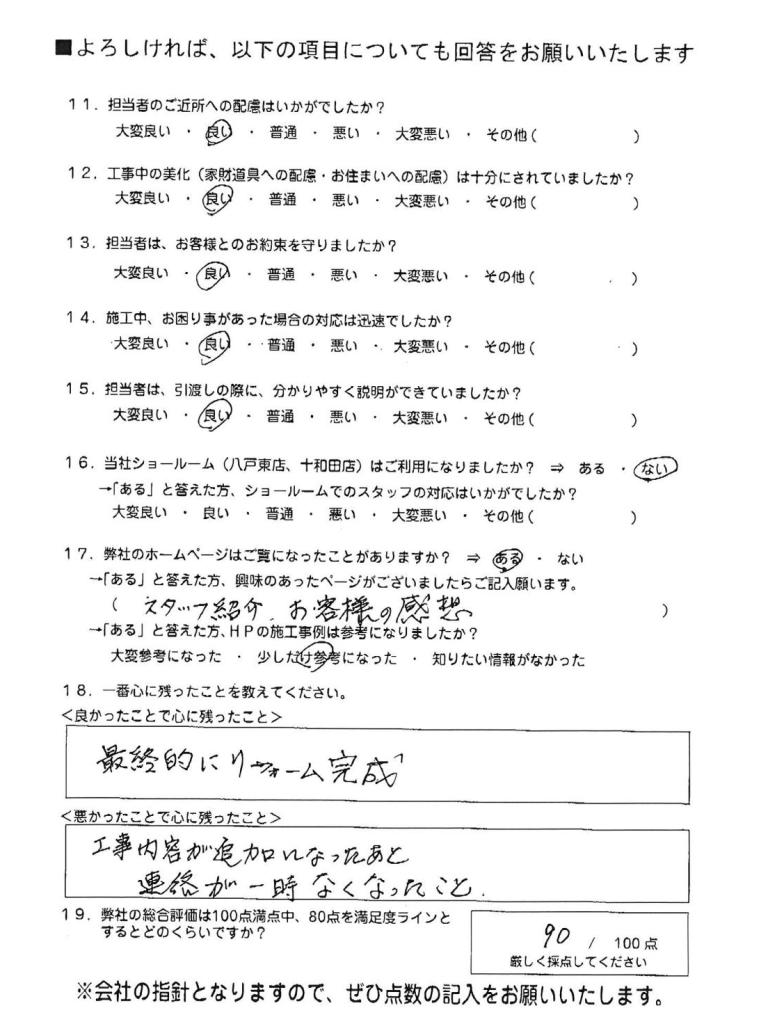 ■よろしければ、以下の項目についても回答をお願いいたします
11．担当者のご近所への配慮はいかがでしたか？
大変良い ・ 良い ・ 普通 ・ 悪い ・ 大変悪い ・ その他（ ）
12．工事中の美化（家財道具への配慮・お住まいへの配慮）は十分にされていましたか？
大変良い ・ 良い ・ 普通 ・ 悪い ・ 大変悪い ・ その他（ ）
13．担当者は、お客様とのお約束を守りましたか？
大変良い ・ 良い ・ 普通 ・ 悪い ・ 大変悪い ・ その他（ ）
14．施工中、お困り事があった場合の対応は迅速でしたか？
大変良い ・ 良い ・ 普通 ・ 悪い ・ 大変悪い ・ その他（ ）
15．担当者は、引渡しの際に、分かりやすく説明ができていましたか？
大変良い ・ 良い ・ 普通 ・ 悪い ・ 大変悪い ・ その他（ ）
16．当社ショールーム（八戸東店、十和田店）はご利用になりましたか？ ⇒ ある ・ ない
→「ある」と答えた方、ショールームでのスタッフの対応はいかがでしたか？
大変良い ・ 良い ・ 普通 ・ 悪い ・ 大変悪い ・ その他（ ）
17．弊社のホームページはご覧になったことがありますか？ ⇒ ある ・ ない
→「ある」と答えた方、興味のあったページがございましたらご記入願います。
（ スタッフ紹介、お客様の感想 ）
→「ある」と答えた方、HPの施工事例は参考になりましたか？
大変参考になった ・ 少しだけ参考になった ・ 知りたい情報がなかった
18．一番心に残ったことを教えてください。
＜良かったことで心に残ったこと＞
最終的にリフォーム完成
＜悪かったことで心に残ったこと＞
工事内容が追加になったあと
連絡が一時なくなったこと.
19．弊社の総合評価は100点満点中、80点を満足度ラインと
するとどのくらいですか？
90 / 100点
厳しく採点してください
※会社の指針となりますので、ぜひ点数の記入をお願いいたします。